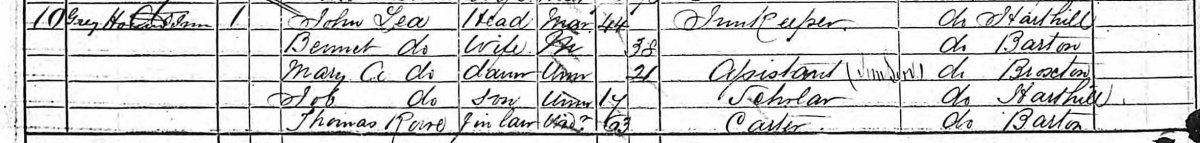 10 Grey Inn 1 John Lea Head Mar 44 Innkeeper do Harthill
Bennet do Wife 38 do Barton
Mary A do daur Unm 21 Assistant do Broxton
Job do Son Unm 14 Scholar do Harthill
Thomas F in law 63 Carter do Barton